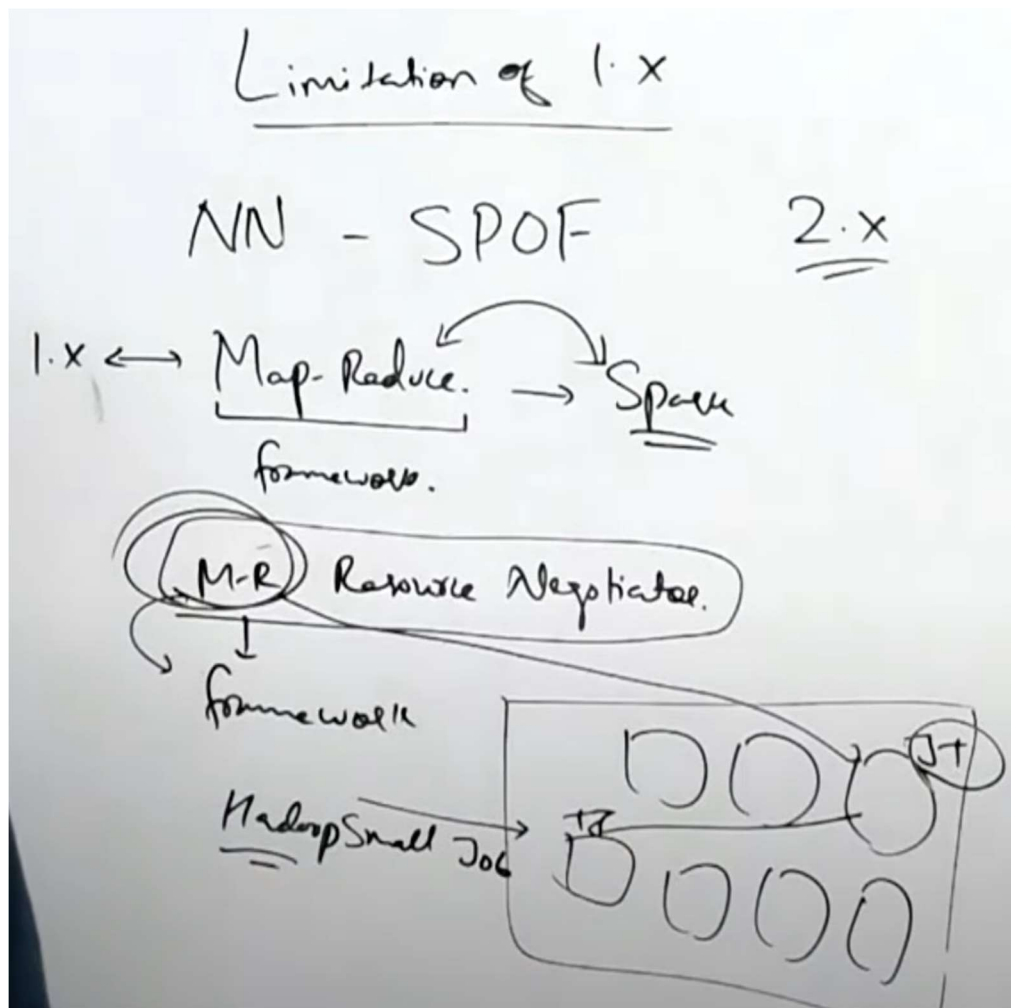 Limitation of 1.x
NN - SPOF
2.x
1.x ↔ Map-Reduce. → Spark
framework.
M-R Resource Negotiator.
framework
J-T
Hadoop Small Job